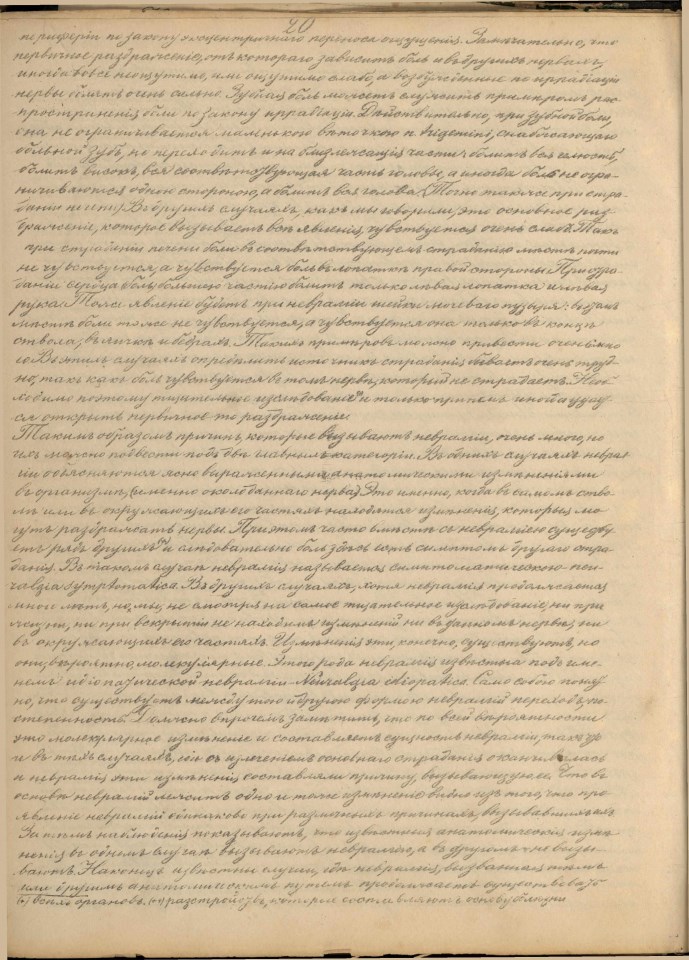 20
периферіи по закону эксцентричнаго переноса ощущенія. Замѣчательно, что
первичное раздраженіе, отъ котораго зависитъ боль и въ другихъ нервахъ,
иногда вовсе неощутимо, или ощутимо слабо, а возбужденные по иррадіаціи
нервы болятъ очень сильно. Зубная боль можетъ служить примѣромъ рас-
пространенія боли по закону иррадіаціи. Дѣйствительно, при зубной боли,
она не ограничивается маленькою вѣточкою n. trigemini, снабжающаго
больной зубъ, но переходитъ и на близлежащія части: болитъ вся челюсть,
болитъ високъ, вся соотвѣтствующая часть головы, а иногда боль не огра-
ничиваются одною стороною, а болитъ вся голова. Точно также при стра-
даніи печени. Въ другихъ случаяхъ, какъ мы говорили, это основное раз-
драженіе, которое вызываетъ всѣ явленія, чувствуется очень слабо. Такъ
при страданіи печени боль въ соотвѣтствующемъ страданію мѣстѣ почти
не чувствуется, а чувствуется боль въ лопаткѣ правой стороны. При стра-
даніи сердца боль, большею частію болитъ только лѣвая лопатка и лѣвая
рука. Тоже явленіе будетъ при невралгіи шейки мочеваго пузыря: въ этомъ
мѣстѣ боли тоже не чувствуется, а чувствуется она только въ концѣ
ствола, въ яичкѣ и бедрахъ. Такихъ примѣровъ можно привести очень мно-
го. Въ этихъ случаяхъ опредѣлить источникъ страданія бываетъ очень труд-
но, такъ какъ боль чувствуется въ томъ нервѣ, который не страдаетъ. Необ-
ходимо поэтому тщательное изслѣдованіе и только при немъ иногда удает-
ся открыть первичное то раздраженіе.
Такимъ образомъ причинъ, которые вызываютъ невралгіи, очень много, но
ихъ можно подвести подъ двѣ главныхъ категоріи. Въ однихъ случаяхъ невралг-
іи объясняются ясно выраженными анатомическими измѣненіями
въ организмѣ, (именно около даннаго нерва). Это именно, когда въ самомъ ство-
лѣ или въ окружающихъ его частяхъ находятся измѣненія, которыя мо-
гутъ раздражать нервы. При этомъ часто вмѣстѣ съ невралгіею существу-
етъ рядъ другихъ и слѣдовательно боль здѣсь есть симптомъ другаго стра-
данія. Въ такомъ случаѣ невралгія называется симптоматическою neu-
ralgia symptomatica. Въ другихъ случаяхъ, хотя невралгія продолжается
много лѣтъ, но мы, не смотря на самое тщательное изслѣдованіе, ни при
жизни, ни при вскрытіи не находимъ измѣненій ни въ данномъ нервѣ, ни
въ окружающихъ его частяхъ. Измѣненія эти, конечно, существуютъ, но
они, вѣроятно, молекулярные. Этого рода невралгія извѣстна подъ име-
немъ идіопатической невралгіи – Neuralgia idiopatica. Само собою понят-
но, что существуетъ между тою и другою формою невралгій переходъ, по-
степенность. Должно впрочемъ замѣтить, что по всей вѣроятности
это молекулярное измѣненіе и составляетъ сущность невралгіи, такъ чт
и въ тѣхъ случаяхъ, гдѣ съ излеченіемъ основнаго страданія оканчивалась
и невралгія эти измѣненія составляли причину, вызывающую ее. Что въ
основѣ невралгій лежитъ одно и тоже измѣненіе видно изъ того, что про-
явленіе невралгій одинаково при различныхъ причинахъ, вызывавшихъ ихъ
За тѣмъ наблюденія показываютъ, что извѣстныя анатомическія измѣ-
ненія въ одномъ случаѣ вызываютъ невралгію, а въ другомъ – не вызы-
ваютъ. Наконецъ извѣстны случаи, гдѣ невралгія, вызванная тѣмъ
или другимъ анатомическимъ путемъ продолжаетъ существовать
разстройствъ, которые составляютъ основу болѣзни